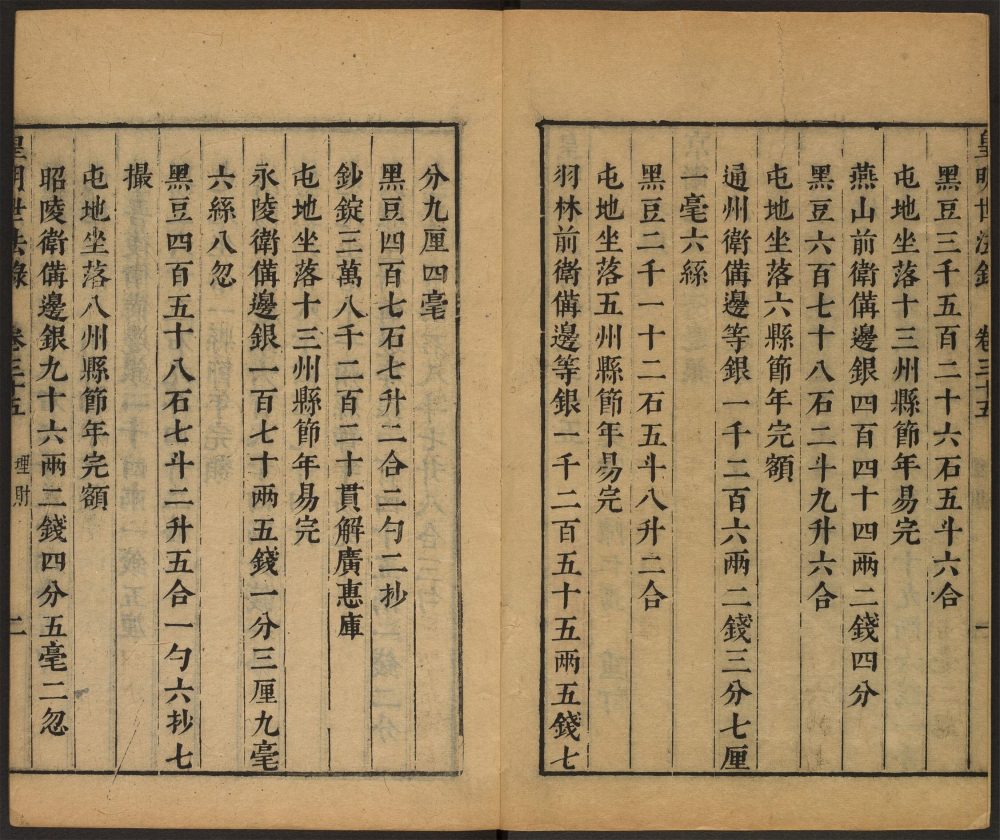 皇明世法錄 卷三十五 一
黑豆三千五百二十六石五斗六合
屯地坐落十三州縣節年易完
燕山前衛備邊銀四百四十四兩二錢四分
黑豆六百七十八石二斗九升六合
屯地坐落六縣節年完額
通州衛備邊等銀一千二百六兩二錢三分七厘
一毫六絲
黑豆二千一十二石五斗八升二合
屯地坐落五州縣節年易完
羽林前衛備邊等銀一千二百五十五兩五錢七
分九厘四毫
黑豆四百七石七升二合二勺二抄
鈔錠三萬八千二百二十貫解廣惠庫
屯地坐落十三州縣節年易完
永陵衛備邊銀一百七十兩五錢一分三厘九毫
六絲八忽
黑豆四百五十八石七斗二升五合一勺六抄七
撮
屯地坐落八州縣節年完額
昭陵衛備邊銀九十六兩二錢四分五毫二忽
皇明世法錄 卷三十五 理財 二